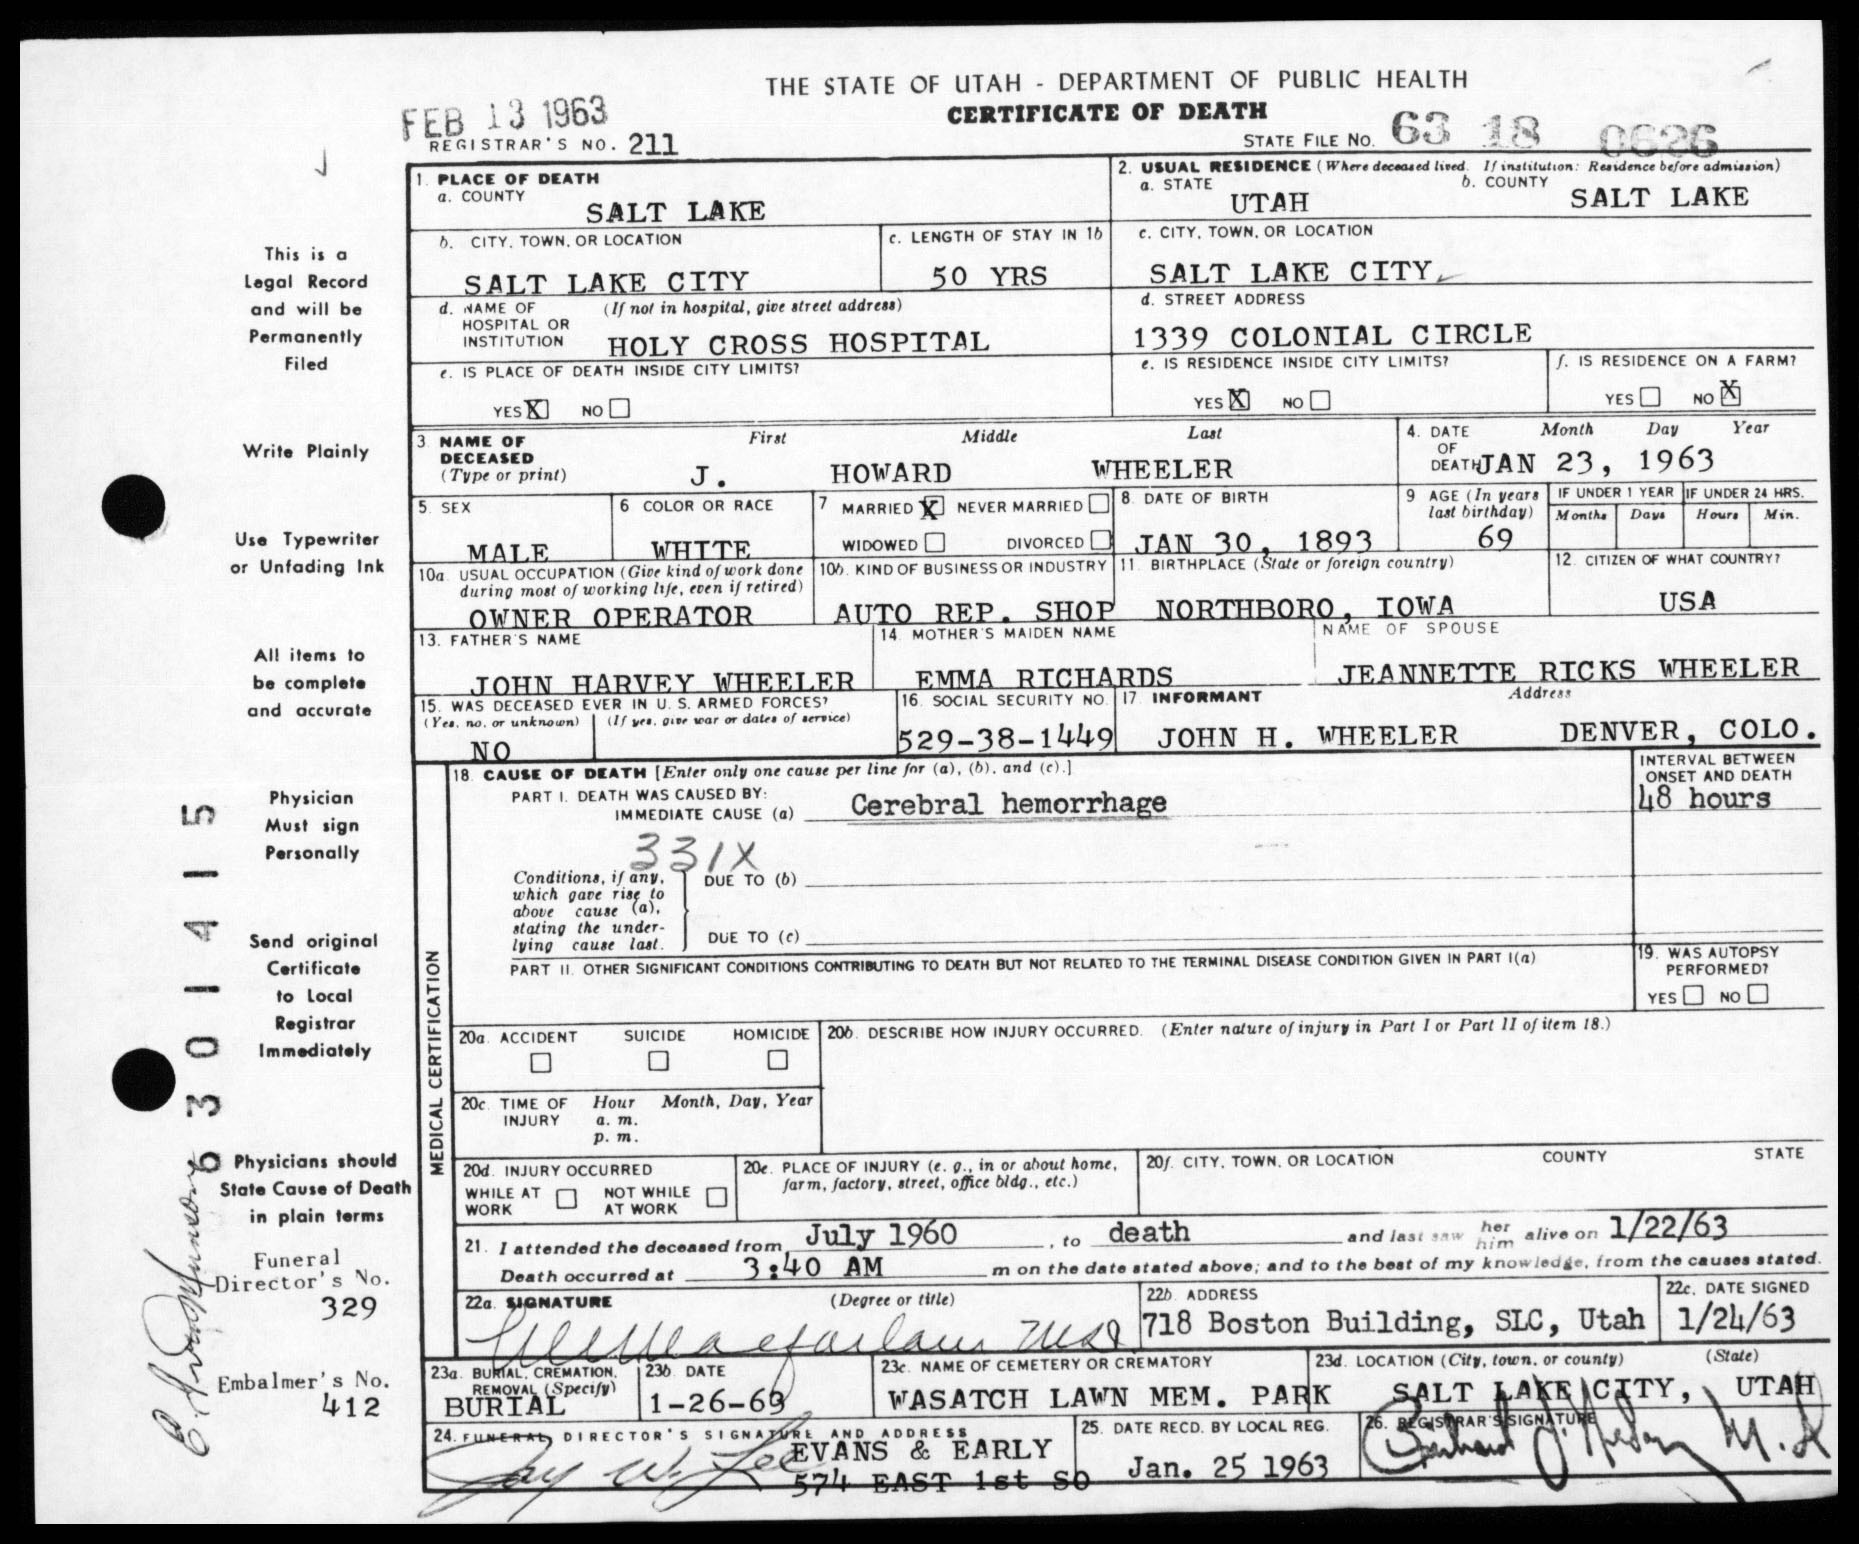 THE STATE OF UTAH - DEPARTMENT OF PUBLIC HEALTH
CERTIFICATE OF DEATH
FEB 13 1963
REGISTRAR'S NO. 211
STATE FILE NO. 63 18 0626
1. PLACE OF DEATH
a. COUNTY
SALT LAKE
2. USUAL RESIDENCE (Where deceased lived. If institution: Residence before admission)
a. STATE
UTAH
b. COUNTY
SALT LAKE
b. CITY, TOWN, OR LOCATION
SALT LAKE CITY
c. LENGTH OF STAY IN 1b
50 YRS
c. CITY, TOWN, OR LOCATION
SALT LAKE CITY
d. NAME OF HOSPITAL OR INSTITUTION
(If not in hospital, give street address)
HOLY CROSS HOSPITAL
d. STREET ADDRESS
1339 COLONIAL CIRCLE
e. IS PLACE OF DEATH INSIDE CITY LIMITS?
YES X NO
e. IS RESIDENCE INSIDE CITY LIMITS?
YES X NO
f. IS RESIDENCE ON A FARM?
YES NO X
3. NAME OF DECEASED
(Type or print)
First Middle Last
J. HOWARD WHEELER
4. DATE OF DEATH
Month Day Year
JAN 23, 1963
5. SEX
MALE
6 COLOR OR RACE
WHITE
7 MARRIED X NEVER MARRIED
WIDOWED DIVORCED
8. DATE OF BIRTH
JAN 30, 1893
9 AGE (In years last birthday)
69
IF UNDER 1 YEAR
Months Days
IF UNDER 24 HRS.
Hours Min.
10a. USUAL OCCUPATION (Give kind of work done during most of working life, even if retired)
OWNER OPERATOR
10b. KIND OF BUSINESS OR INDUSTRY
AUTO REP. SHOP
11. BIRTHPLACE (State or foreign country)
NORTHBORO, IOWA
12. CITIZEN OF WHAT COUNTRY?
USA
13. FATHER'S NAME
JOHN HARVEY WHEELER
14. MOTHER'S MAIDEN NAME
EMMA RICHARDS
NAME OF SPOUSE
JEANNETTE RICKS WHEELER
15. WAS DECEASED EVER IN U. S. ARMED FORCES?
(Yes, no, or unknown) (If yes, give war or dates of service)
NO
16. SOCIAL SECURITY NO.
529-38-1449
17 INFORMANT
Address
JOHN H. WHEELER DENVER, COLO.
MEDICAL CERTIFICATION
18. CAUSE OF DEATH [Enter only one cause per line for (a), (b), and (c).]
PART I. DEATH WAS CAUSED BY:
IMMEDIATE CAUSE (a) Cerebral hemorrhage
INTERVAL BETWEEN ONSET AND DEATH
48 hours
331X
Conditions, if any, which gave rise to above cause (a), stating the underlying cause last.
DUE TO (b)
DUE TO (c)
PART II. OTHER SIGNIFICANT CONDITIONS CONTRIBUTING TO DEATH BUT NOT RELATED TO THE TERMINAL DISEASE CONDITION GIVEN IN PART I(a)
19. WAS AUTOPSY PERFORMED?
YES NO
20a. ACCIDENT SUICIDE HOMICIDE
20b. DESCRIBE HOW INJURY OCCURRED. (Enter nature of injury in Part I or Part II of item 18.)
20c. TIME OF INJURY
Hour Month, Day, Year
a. m.
p. m.
20d. INJURY OCCURRED
WHILE AT WORK NOT WHILE AT WORK
20e. PLACE OF INJURY (e. g., in or about home, farm, factory, street, office bldg., etc.)
20f. CITY, TOWN, OR LOCATION COUNTY STATE
21. I attended the deceased from July 1960, to death and last saw her him alive on 1/22/63
Death occurred at 3:40 AM m on the date stated above; and to the best of my knowledge, from the causes stated.
22a. SIGNATURE (Degree or title)
22b. ADDRESS
718 Boston Building, SLC, Utah
22c. DATE SIGNED
1/24/63
23a. BURIAL, CREMATION, REMOVAL (Specify)
BURIAL
23b. DATE
1-26-63
23c. NAME OF CEMETERY OR CREMATORY
WASATCH LAWN MEM. PARK
23d. LOCATION (City, town, or county) (State)
SALT LAKE CITY, UTAH
24. FUNERAL DIRECTOR'S SIGNATURE AND ADDRESS
Jay W. Lee
EVANS & EARLY
574 EAST 1st SO
25. DATE RECD. BY LOCAL REG.
Jan. 25 1963
26. REGISTRAR'S SIGNATURE
This is a
Legal Record
and will be
Permanently
Filed
Write Plainly
Use Typewriter
or Unfading Ink
All items to
be complete
and accurate
Physician
Must sign
Personally
Send original
Certificate
to Local
Registrar
Immediately
Physicians should
State Cause of Death
in plain terms
Funeral
Director's No.
329
Embalmer's No.
412
6301415